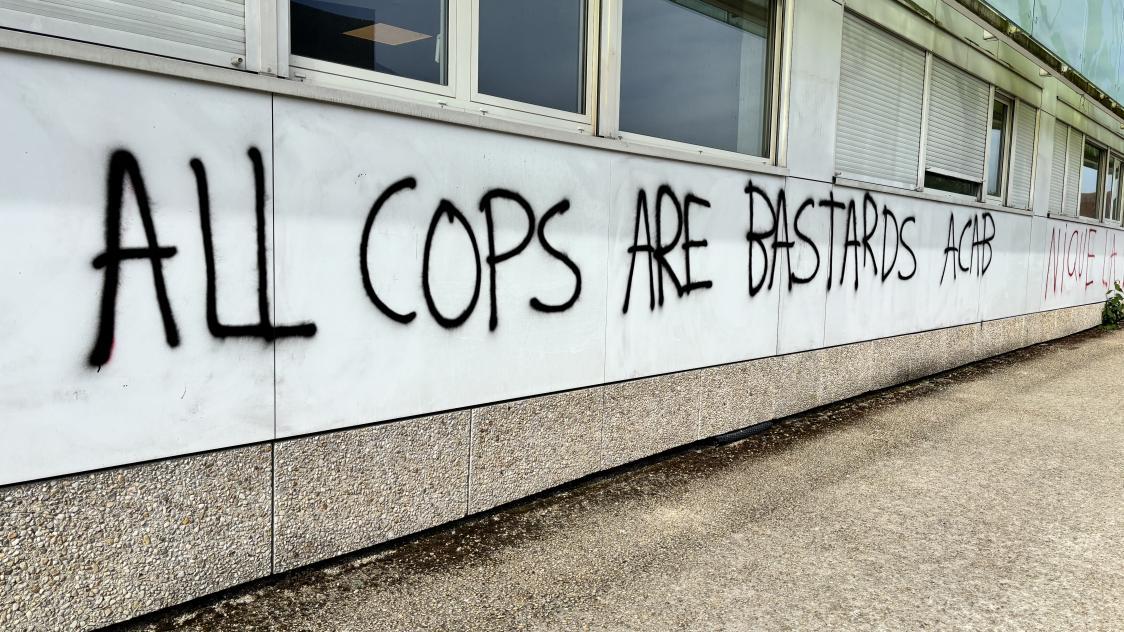 ALL COPS ARE BASTARDS ACAB
NIQUE LA